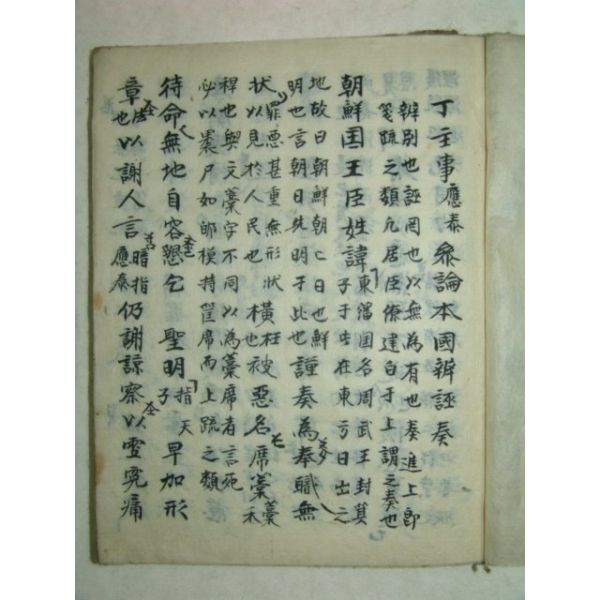 丁主事應泰參論本國辨誣奏
辨別也誣罔也以無為有也奏進上卽
箋疏之類凡居臣僚建白于上謂之奏也
朝鮮国王臣姓諱東藩国名周武王封箕
子于此在東方日出之
地故曰朝鮮朝亡日也鮮
明也言朝日先明于此也謹奏為奉職無
狀罪悪甚重無形狀橫枉被惡名席藁藁禾
以見於人民也也
稈也與文藁字不同以為藁席者言死
必以裹尸如邮模持筐席而上疏之類
待命無地自容懇乞聖明指天子早加形
章也以謝人言暗指應泰仍謝諒察以雪寃痛